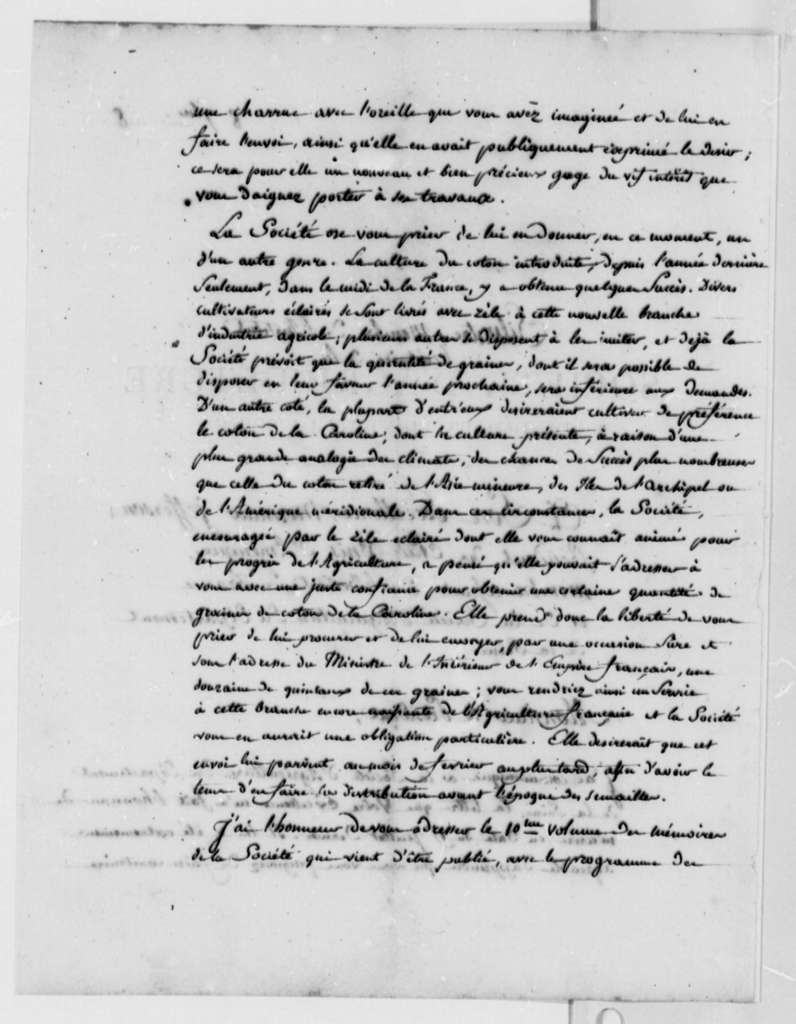 une charrue avec l'oreille que vous avéz imaginée et de lui en
faire l'envoi, ainsi qu'elle en avait publiquement exprimé le desir;
ce sera pour elle un nouveau et bien précieux gage du vif intérêt que
vous daignez porter à ses travaux.
La Société ose vous prier de lui en donner, en ce moment, un
d'un autre genre. La culture du coton introduite, depuis l'année dernière
seulement, dans le midi de la France, y a obtenu quelques succès. Divers
cultivateurs éclairés se sont livrés avec zèle à cette nouvelle branche
d'industrie agricole; plusieurs autres se disposent à les imiter, et dejà la
Société prévoit que la quantité de graines, dont il sera possible de
disposer en leur faveur l'année prochaine, sera inférieure aux demandes.
D'un autre coté, la plupart d'entr'eux desireraient cultiver de préférence
le coton de la Caroline, dont la culture présente, à raison d'une
plus grande analogie du climat, des chances de succès plus nombreuses
que celle du coton retiré de l'Asie mineure, des Iles de l'archipel ou
de l'Amérique méridionale. Dans ces circonstances, la Société,
encouragée par le zèle eclairé dont elle vous connait animé pour
les progrès de l'Agriculture, a pensé qu'elle pouvait s'adresser à
vous avec une juste confiance pour obtenir une certaine quantité de
graines de coton de la Caroline. Elle prend donc la liberté de vous
prier de lui procurer et de lui envoyer, par une occasion sûre et
sous l'adresse du Ministre de l'Intérieur de l'Empire français, une
douzaine de quintaux de ces graines; vous rendriez ainsi un service
à cette branche encore naissante de l'Agriculture française et la Société
vous en aurait une obligation particulière. Elle desirerait que cet
envoi lui parvint au mois de fevrier au plus tard, afin d'avoir le
tems d'en faire la distribution avant l'époque des semailles.
J'ai l'honneur de vous adresser le 10me volume des mémoires
de la Société qui vient d'être publié, avec le programme des